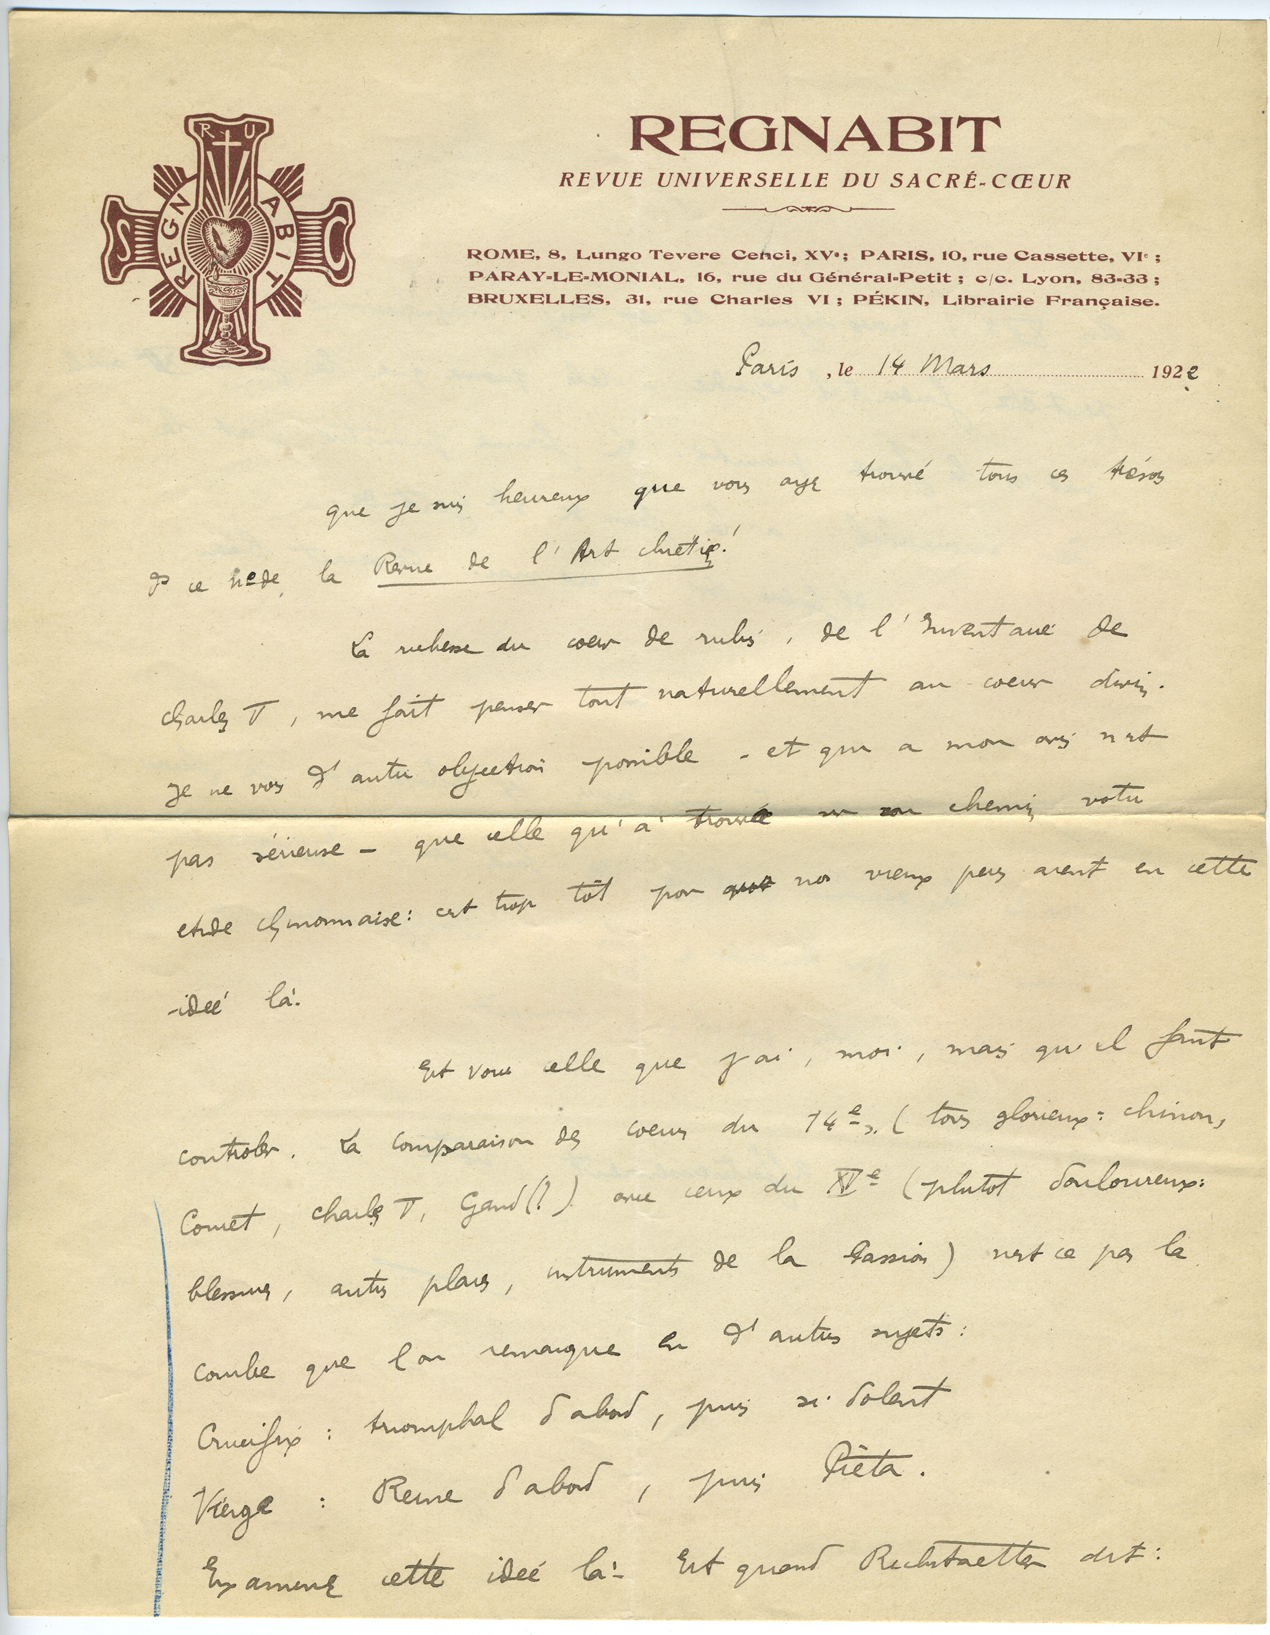 R U
S REGNABIT C
REGNABIT
REVUE UNIVERSELLE DU SACRÉ-CŒUR
ROME, 8, Lungo Tevere Cenci, XVe; PARIS, 10, rue Cassette, VIe;
PARAY-LE-MONIAL, 16, rue du Général-Petit; c/c. Lyon, 83-33;
BRUXELLES, 31, rue Charles VI; PÉKIN, Librairie Française.
Paris, le 14 Mars 1922
que je suis heureux que vous ayez trouvé tous ces trésors
ds ce no de la Revue de l'Art chrétien!
La richesse du coeur de rubis, de l'Inventaire de
Charles V, me fait penser tout naturellement au coeur divin.
Je ne vois d'autre objection possible - et qui a mon avis n'est
pas sérieuse - que celle qu'a trouvée sur son chemin votre
etude chinonnaise: c'est trop tôt pour que nos vieux pères aient eu cette
idée là.
Et voici celle que j'ai, moi, mais qu'il faut
controler. La comparaison des coeurs du 14e s. (tous glorieux: chinon,
Comet, Charles V, Gand(?)) avec ceux du XVe (plutot douloureux:
blessures, autres plaies, instruments de la Passion) n'est ce pas la
courbe que l'on remarque en d'autres sujets:
Crucifix: triomphal d'abord, puis si dolent
Vierge: Reine d'abord, puis Pièta.
Examinez cette idée là. Et quand Richstaetter dit: